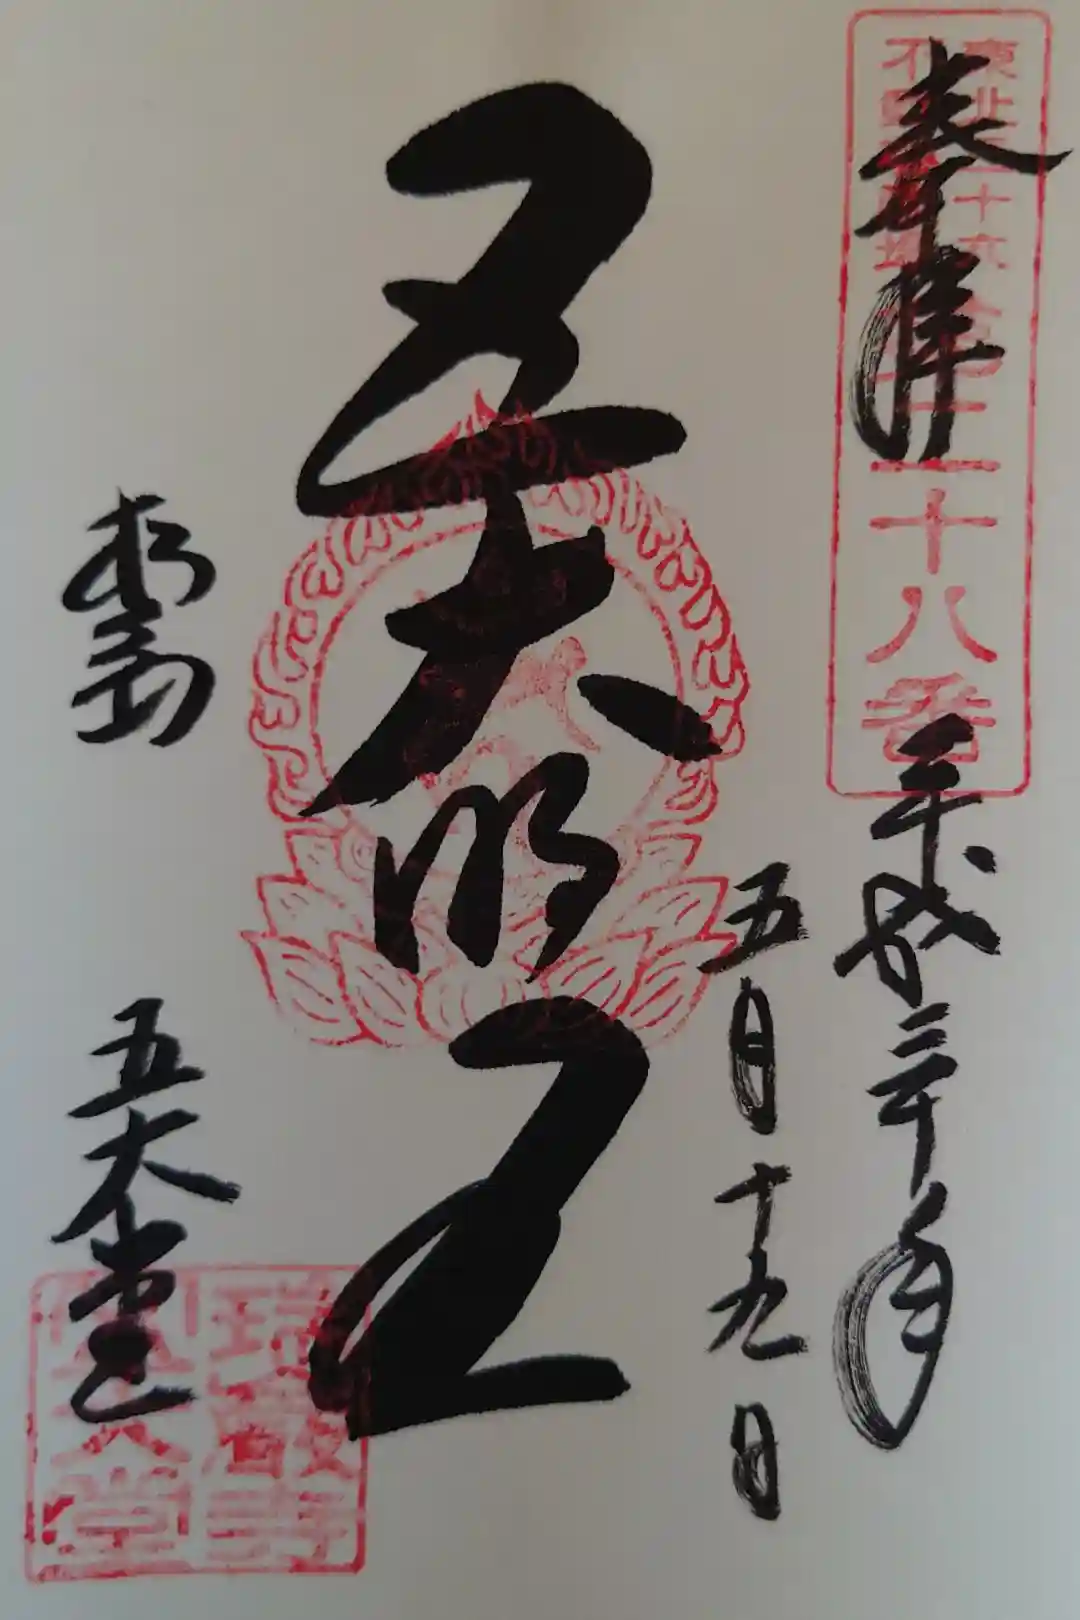 東北三十六
不動尊霊場
第二十八番
奉拝
平成三十年
五月十九日
五大明王
松島
五大堂
瑞巌寺
五大堂